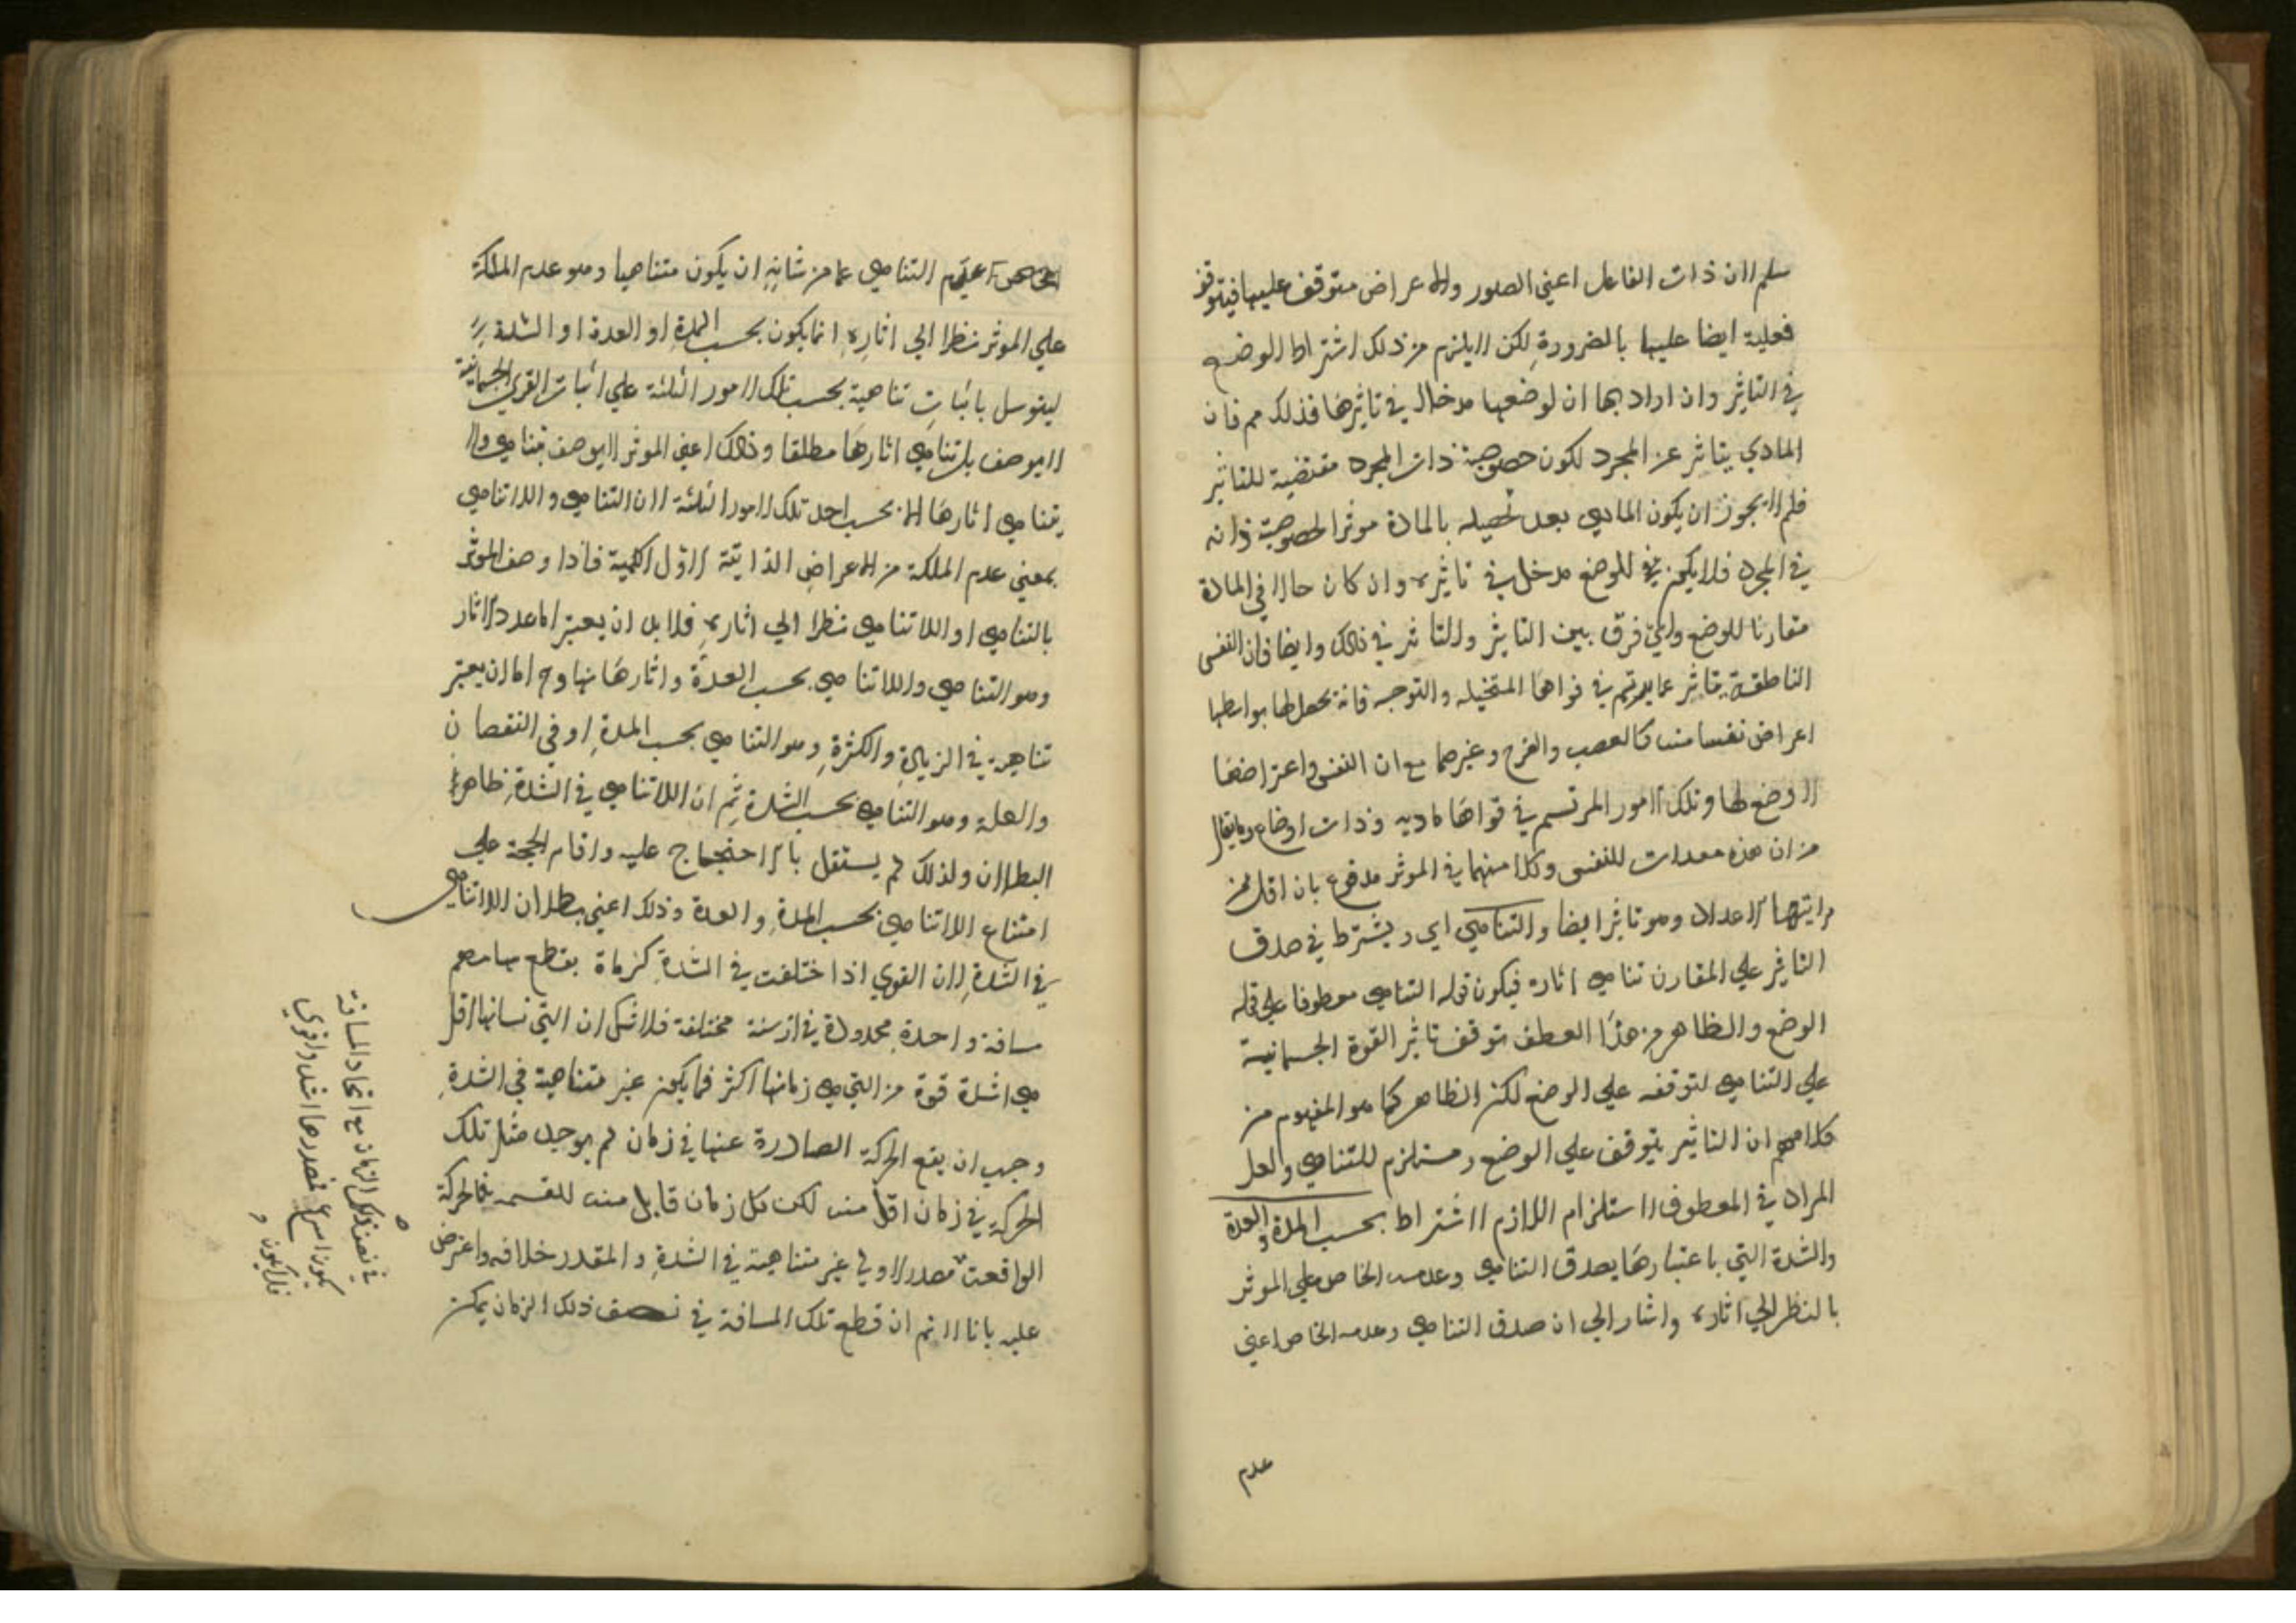 سلم الان ذات الفاعل اعني الصور والاعراض متوقف عليها فيتوقف
فعلية ايضا عليها بالضرورة لكن لا يلزم من ذلك اشتراط الوضع
في التاثير وان اراد بها ان لوضعها مدخلا في تاثيرها فذلك مم فان
المادي يتاثر عن المجرد لكون خصوصية ذات المجرد مقتضية للتاثير
فلم لا يجوز ان يكون المادي بعد تحصيله بالمادة موثرا لخصوصية ذاته
في المجرد فلا يكون للوضع مدخل في تاثيره وان كان حالا في المادة
مقارنا للوضع واي فرق بين التاثير والتاثر في ذلك وايضا فان النفس
الناطقة يتاثر عما يرتسم في قواها المتخيلة والتوجه فانه يحصل لها بواسطها
اعراض نفسانية كالغضب والفرح وغيرهما مع ان النفس واعتراضها
لا وضع لها وتلك الامور المرتسم في قواها مادية وذات اوضاع وما يقال
من ان هذه معدات للنفس وكلامنا في الموثر مدفوع بان اقل من
مراتبها الاعداد وهو تاثير ايضا والتناهي اي ويشترط في صدق
التاثير علي المقارن تناهي اثاره فيكون قوله التناهي معطوفا علي قوله
الوضع والظاهر من هذا العطف توقف تاثير القوة الجسمانية
علي التناهي لتوقفه علي الوضع لكن الظاهر كما هو المفهوم من
كلامهم ان التاثير يتوقف علي الوضع ومستلزم للتناهي ولعل
المراد في المعطوف الاستلزام اللازم للاشتراط بحسب المدة والعدة
والشدة التي باعتبارها يصدق التناهي وعدمه الخاص علي الموثر
بالنظر الي اثاره واشار الي ان صدق التناهي وعدمه الخاص اعني
عدم
عدم التناهي عما من شانه ان يكون متناهيا وهو عدم الملكة
علي الموثر نظرا الي اثاره انما يكون بحسب المدة او العدة او الشدة
ليتوسل باثبات تناهية بحسب تلك الامور الثلثة علي اثبات القوي الجسمانية
لا يوصف بلا تناهي اثارها مطلقا وذلك اعني الموثر لا يوصف بتناهي ولا
يتناهي اثارها الا بحسب احد تلك الامور الثلثة لان التناهي واللاتناهي
بمعني عدم الملكة من الاعراض الذاتية الاول الكمية فاذا وصف الموثر
بالتناهي او اللاتناهي نظرا الي اثاره فلا بد ان يعتبر اما عدد الاثار
وهو التناهي واللاتناهي بحسب العدة واثارها وح اما ان يعتبر
تناهيه في الزيادة والكثرة وهو التناهي بحسب المدة او في النقصان
والعلة وهو التناهي بحسب الشدة ثم ان اللاتناهي في الشدة ظاهر
البطلان ولذلك لم يستقل بالاحتجاج عليه واقام الحجة علي
امتناع اللاتناهي بحسب المدة والعدة وذلك اعني بطلان اللاتناهي
في الشدة لان القوي اذا اختلفت في الشدة كرماة يقطع سهامهم
مسافة واحدة محدودة في ازمنة مختلفة فلا شك ان التي زمانها اقل
هي اشدة قوة من التي هي زمانها اكثر فما يكون غير متناهية في الشدة
وجب ان يقع الحركة الصادرة عنها في زمان لم يوجد مثل تلك
الحركة في زمان اقل منه لكن كل زمان قابل منه للقسمة فالحركة
الواقعة مصدر الاولي غير متناهية في الشدة والمقدر خلافه واعترض
عليه بانا لا نم ان قطع تلك المسافة في نصف ذلك الزمان يمكن
في نصف ذلك الزمان مع اتحاد المسافة
يكون اسرع فمصدرها اشد واقوي
فلا يكون